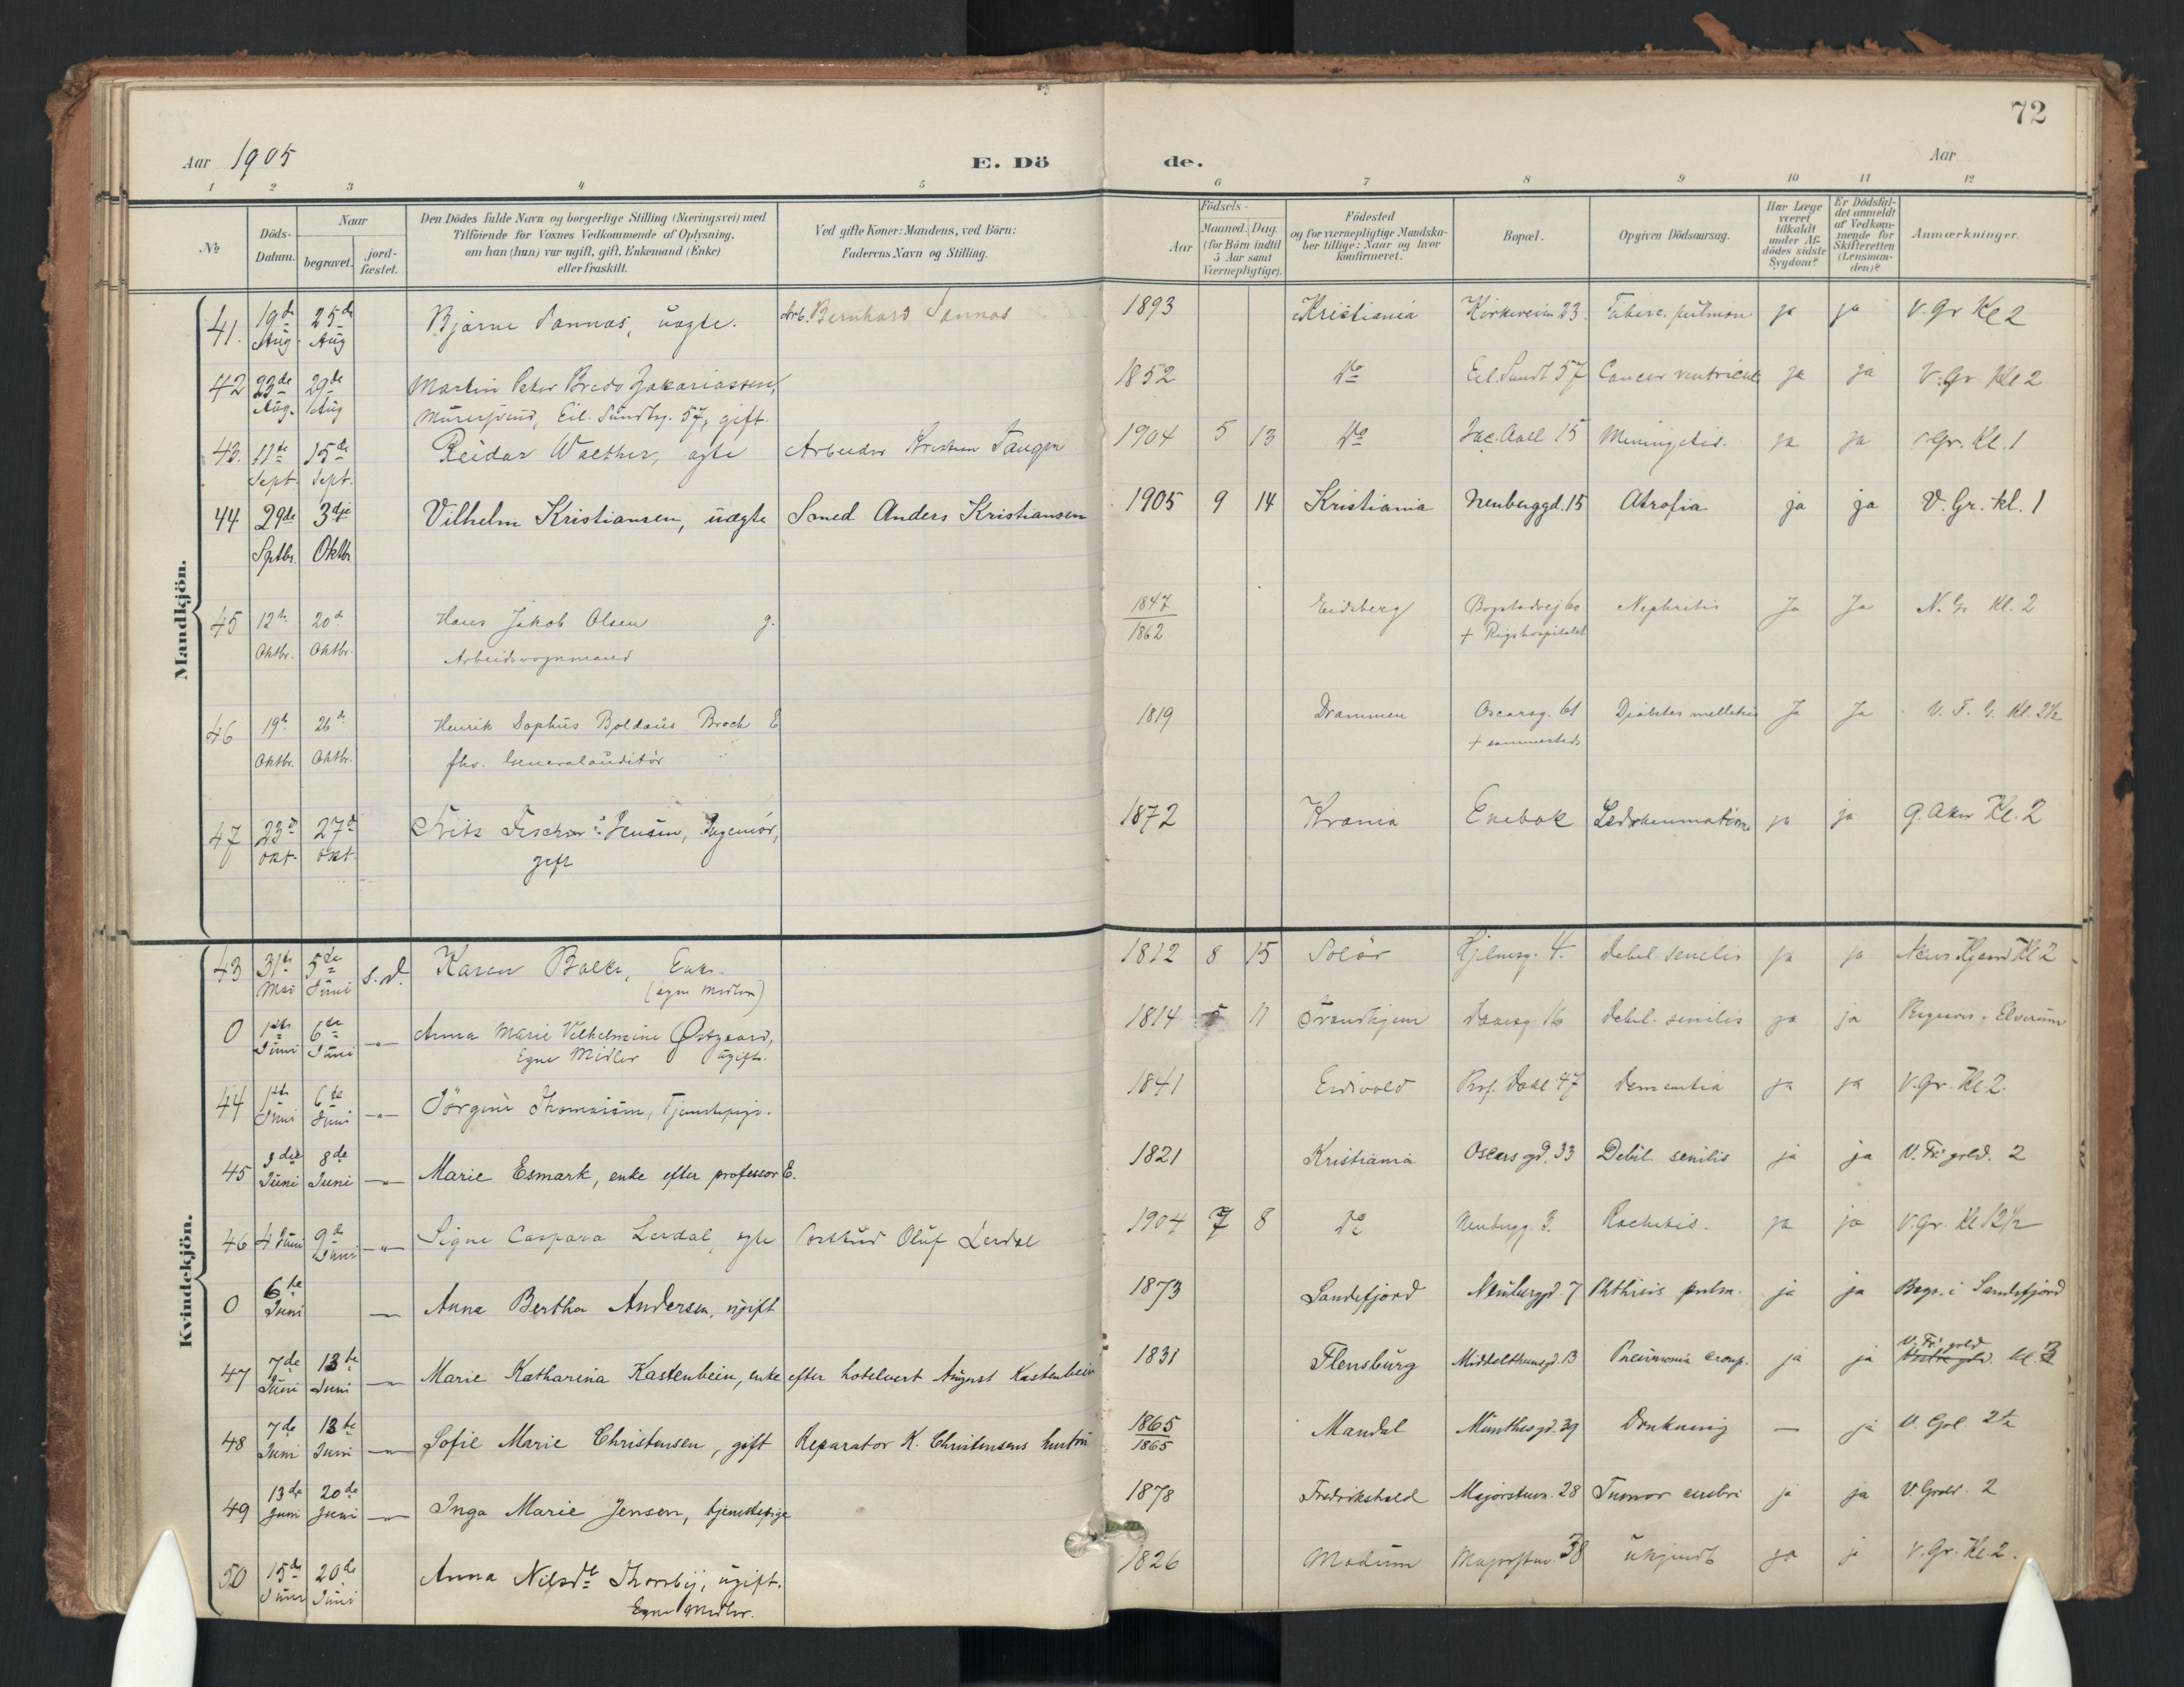 72
Aar 1905 E. Dö de. Aar
1 2 3 4 5 6 7 8 9 10 11 12
No
Döds-Datum.
Naar
begravet.
jord-fæstet.
Den Dödes fulde Navn og borgerlige Stilling (Næringsvei) med
Tilföiende for Voxnes Vedkommende af Oplysning,
om han (hun) var ugift, gift, Enkemand (Enke)
eller fraskilt.
Ved gifte Koner: Mandens, ved Börn:
Faderens Navn og Stilling.
Födsels-
Aar
Maaned. Dag.
(for Börn indtil
5 Aar samt
Værnepligtige).
Födested
og for værnepligtige Mandska-
ber tillige: Naar og hvor
konfirmeret.
Bopæl.
Opgiven Dödsaarsag.
Har Læge
været
tilkaldt
under Af-
dödes sidste
Sygdom?
Er Dödsfal-
det anmeldt
af Vedkom-
mende for
Skifteretten
(Lensman-
den)?
Anmærkninger.
Mandkjön.
41. 19de 25de Bjarne Sannas, uægte. Arb. Bernhard Sannas 1893 Kristiania Kirkeveien 23 Tuberc. pulmon ja ja V. Gr Kl 2
Aug. Aug
42 23de 29de Martin Peter Bredo Zakariassen, 1852 Do Eil. Sundt 57 Cancer ventricul. ja ja V. Gr Kl 2
Aug. Aug Murersvend, Eil. Sundtsg. 57, gift.
43. 11te 15de Reidar Walther, ægte Arbeider Kristian Taugen 1904 5 13 Do Jac. Aall 15 Meningitis. ja ja Gr. Kl. 1
Sept. Sept.
44 29de 3dje Vilhelm Kristiansen, uægte Smed Anders Kristiansen 1905 9 14 Kristiania Neuberggd. 15 Atrofia ja ja V. Gr. kl. 1
Septbr. Oktbr
45 12te 20de Hans Jakob Olsen g. 1847 Eidsberg Bogstadvej 60 Nephritis Ja Ja N. Gr Kl. 2
Oktbr. Oktbr. Arbeidsvognmand 1862 + Rigshospitalet
46 19de 26de Henrik Sophus Boldæus Broch E 1819 Drammen Oscarsg. 61 Diabetes mellitus Ja Ja V. F. G. Kl. 2½
Oktbr. Oktbr. fhv. Generalauditör + sammesteds
47 23de 27de Fritz Fischer Jensen, Ingeniör, 1872 Krania Enebak Ledrheumatisme ja ja Kl. 2
okt. okt. gift
Kvindekjön.
43 31te 5te s. d. Karen Balke, Enke. 1812 8 15 Solör Hjelmsg. 4. Debil. senilis ja ja Kl 2
Mai Juni (egne Midler)
0 1ste 6te -"- Anna Marie Vilhelmine Østgaard, 1814 5 11 Trondhjem Daasg. 16 Debil. senilis ja ja Elverum
Juni Juni Egne Midler ugift.
44 1ste 6te -"- Jörgine Thomasen, Tjenestepige. 1841 Eidsvold Prof. Dahl 47 Dementia ja ja V. Gr. Kl 2.
Juni Juni
45 3die 8de -"- Marie Esmark, enke efter professor E. 1821 Kristiania Oscars gd. 33 Debil. senilis ja ja V. Fr: grld. 2
Juni Juni
46 4 Juni 9de -"- Signe Caspara Lerdal, ægte Postbud Oluf Lerdal 1904 7 8 Do Neubergg. 3. Rachitis. ja ja V. Gr. Kl 2½
Juni
0 6te -"- Anna Bertha Andersen, ugift 1873 Sandefjord Neuberggd. 7 Phthisis pulm. ja ja Begr. i Sandefjord
Juni
47 7de 13te -"- Marie Katharina Kastenbein, enke efter hotelvert August Kastenbein 1831 Flensburg Middelthunsgd. 13 Pneumonia croup. ja ja V. Fr: grld kl. 3
Juni Juni
48 7de 13te -"- Sofie Marie Christensen, gift Reparator K. Christensens hustru 1865 Mandal Munthesgd. 39 Drukning — ja V. Grl. 2½
Juni Juni 1865
49 13de 20de -"- Inga Marie Jensen, tjenestepige 1878 Fredrikshald Majorstuv. 28 Tumor cerebri ja ja V. Grld. 2
Juni Juni
50 15de 20de Anna Nilsdt Thorsby, ugift. 1826 Modum Majorstuv. 38 ukjendt ja ja V. Gr. Kl. 2.
Juni Juni Egne Midler.